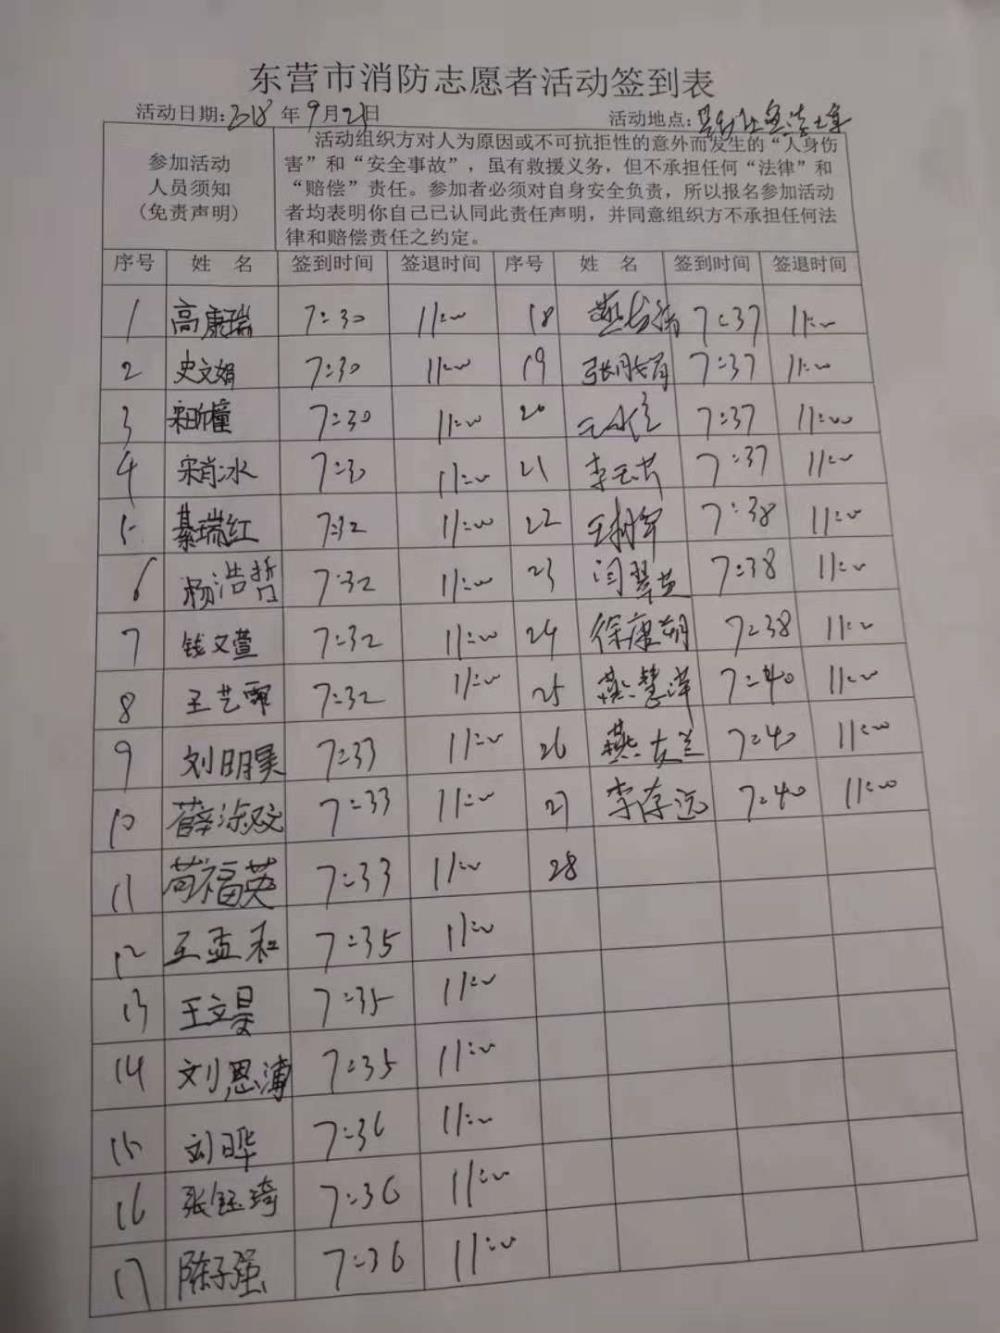 东营市消防志愿者活动签到表
活动日期:2018年9月21日 活动地点:
参加活动
人员须知
(免责声明)
活动组织方对人为原因或不可抗拒性的意外而发生的“人身伤
害”和“安全事故”，虽有救援义务，但不承担任何“法律”和
“赔偿”责任。参加者必须对自身安全负责，所以报名参加活动
者均表明你自己已认同此责任声明，并同意组织方不承担任何法
律和赔偿责任之约定。
序号 姓 名 签到时间 签退时间 序号 姓 名 签到时间 签退时间
1 高康瑞 7:30 11:00 18 7:37 11:00
2 史文娟 7:30 11:00 19 张胜男 7:37 11:00
3 7:30 11:00 20 7:37 11:00
4 宋肖冰 7:30 11:00 21 李云芳 7:37 11:00
5 綦瑞红 7:32 11:00 22 7:38 11:00
6 杨浩哲 7:32 11:00 23 闫翠英 7:38 11:00
7 钱文萱 7:32 11:00 24 徐康朔 7:38 11:00
8 王艺霏 7:32 11:00 25 燕慧洋 7:40 11:00
9 刘明昊 7:33 11:00 26 燕友兰 7:40 11:00
10 薛 7:33 11:00 27 李存远 7:40 11:00
11 苟福英 7:33 11:00 28
12 王孟和 7:35 11:00
13 王文昊 7:35 11:00
14 刘恩溥 7:35 11:00
15 刘晔 7:36 11:00
16 张钰琦 7:36 11:00
17 陈子强 7:36 11:00